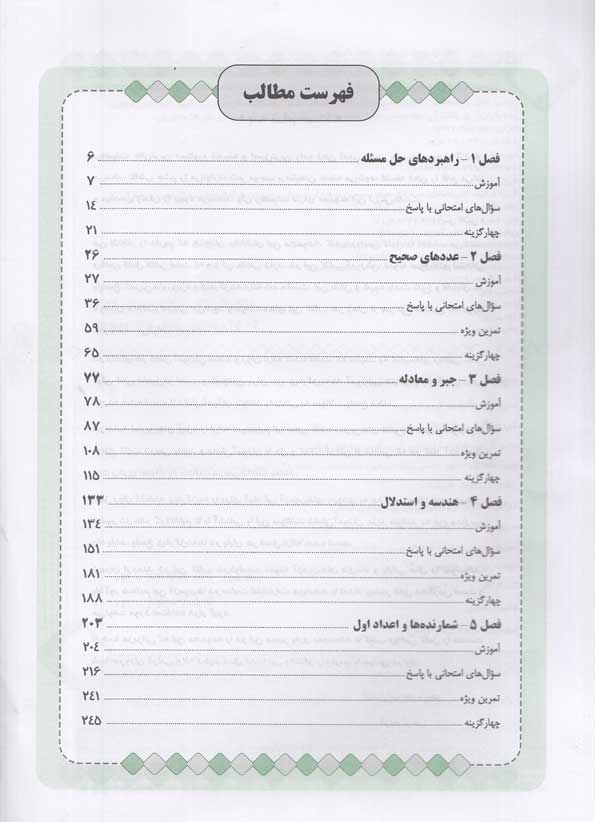 فهرست مطالب
فصل ۱ - راهبردهای حل مسئله ........ ۶
آموزش ........ ۷
سؤال‌های امتحانی با پاسخ ........ ۱۴
چهارگزینه ........ ۲۱
فصل ۲ - عددهای صحیح ........ ۲۶
آموزش ........ ۲۷
سؤال‌های امتحانی با پاسخ ........ ۳۶
تمرین ویژه ........ ۵۹
چهارگزینه ........ ۶۵
فصل ۳ - جبر و معادله ........ ۷۷
آموزش ........ ۷۸
سؤال‌های امتحانی با پاسخ ........ ۸۷
تمرین ویژه ........ ۱۰۸
چهارگزینه ........ ۱۱۵
فصل ۴ - هندسه و استدلال ........ ۱۳۳
آموزش ........ ۱۳۴
سؤال‌های امتحانی با پاسخ ........ ۱۵۱
تمرین ویژه ........ ۱۸۱
چهارگزینه ........ ۱۸۸
فصل ۵ - شمارنده‌ها و اعداد اول ........ ۲۰۳
آموزش ........ ۲۰۴
سؤال‌های امتحانی با پاسخ ........ ۲۱۶
تمرین ویژه ........ ۲۴۱
چهارگزینه ........ ۲۴۵